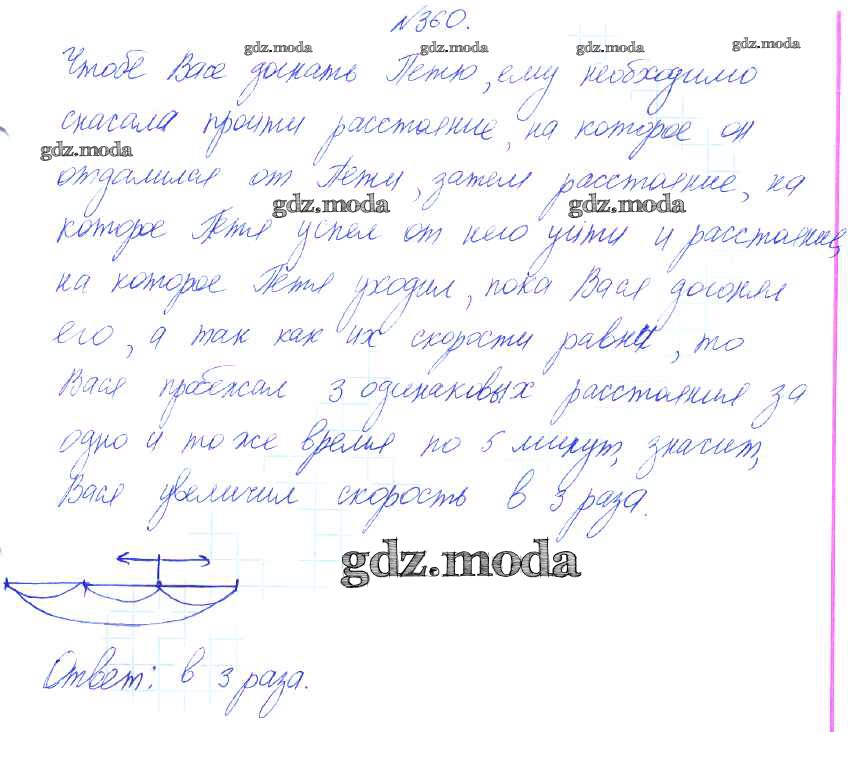 №360.
gdz.moda gdz.moda gdz.moda
Чтобе Васе догнать Петю, ему необходимо
снасала пройти расстояние, на которое он
gdz.moda
отдалился от Пети, затем расстояние, на
gdz.moda gdz.moda
которое Петя успел от него уйти и расстояние,
на которое Петя уходил, пока Вася догонял
его, а так как их скорости равны, то
Вася пробежал 3 одинаковых расстояния за
одно и то же время по 5 минут, значит,
Вася увеличил скорость в 3 раза.
gdz.moda
Ответ: в 3 раза.